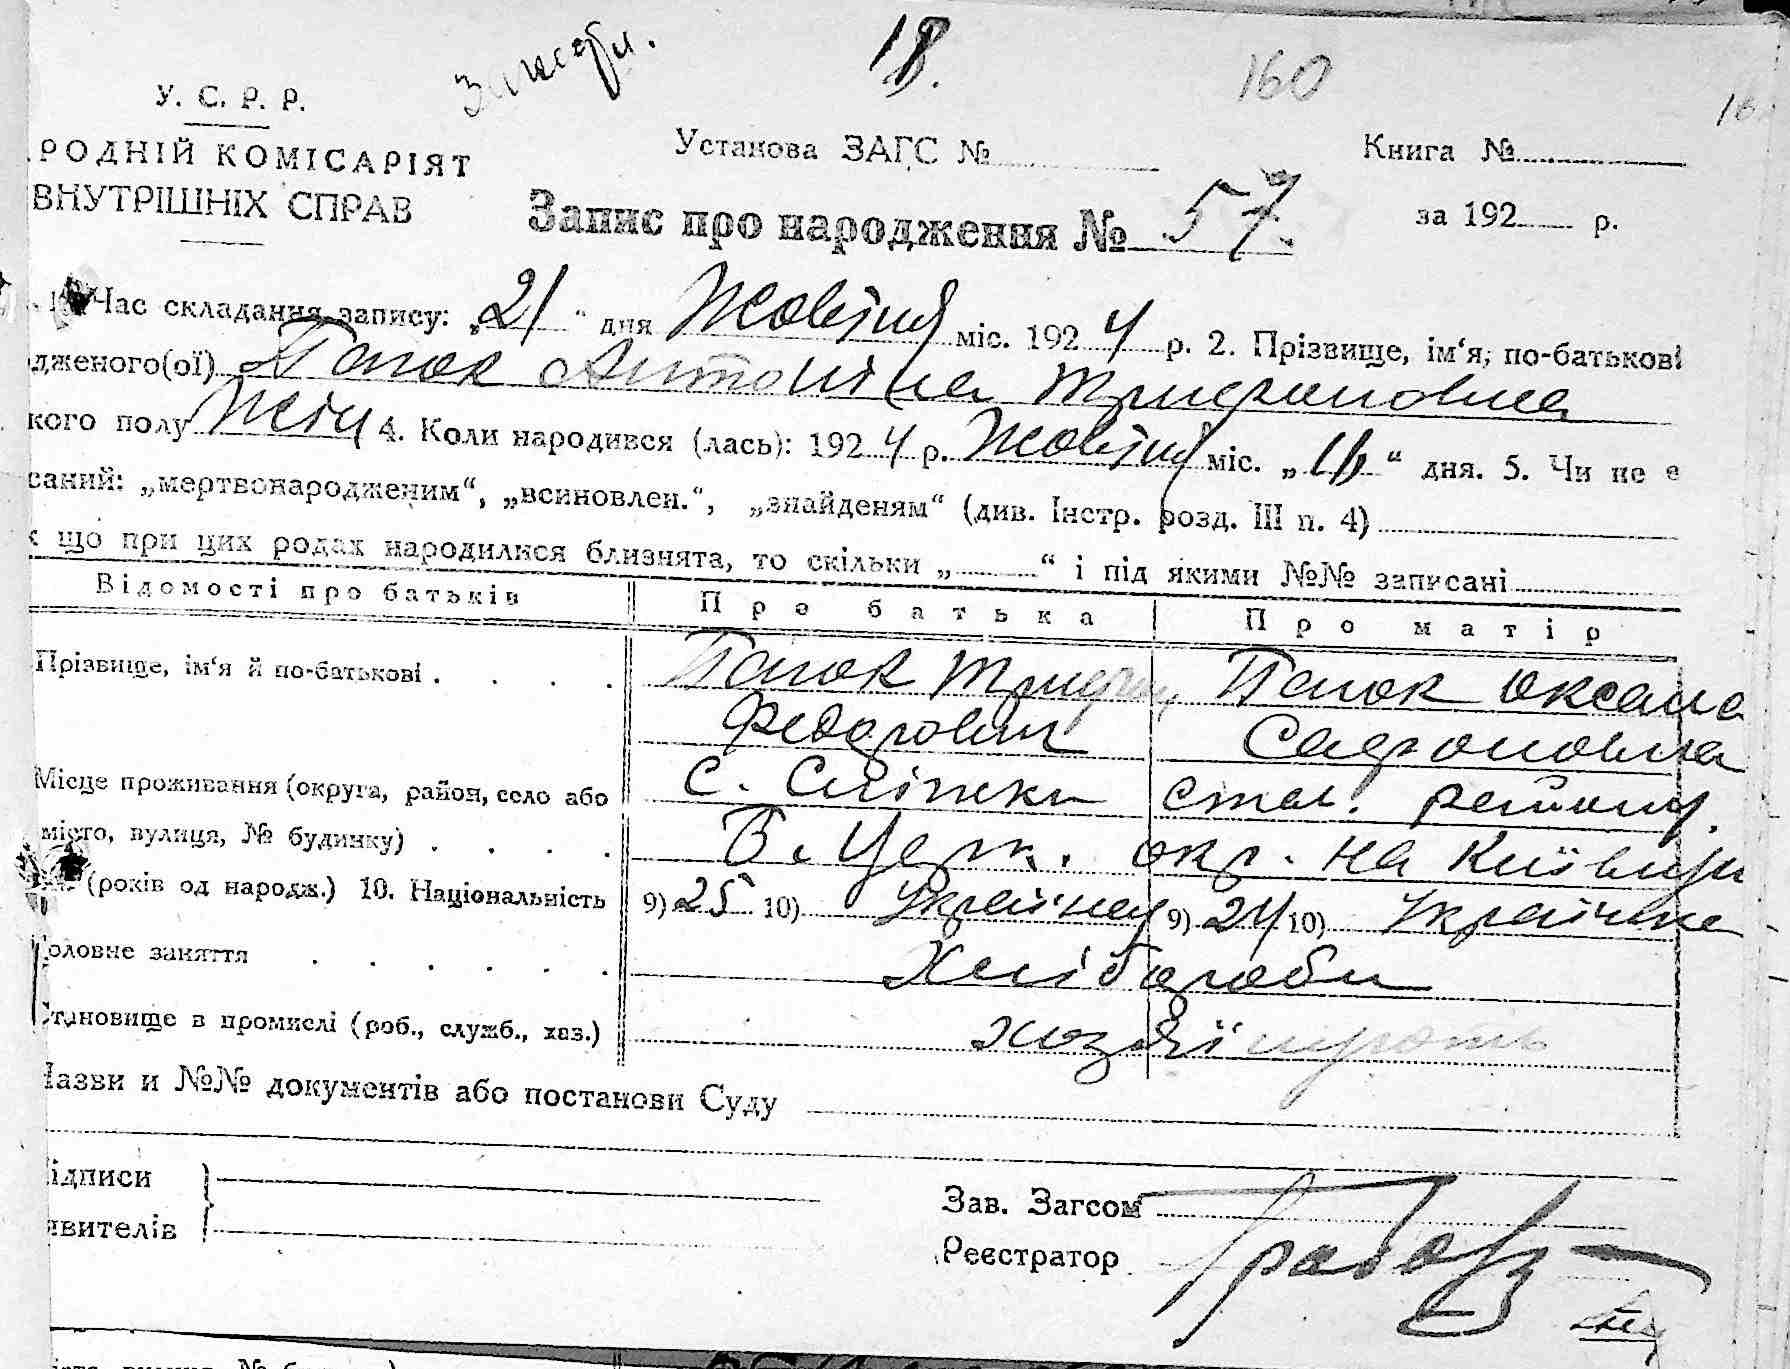 18.
160
У. С. Р. Р.
РОДНІЙ КОМІСАРІЯТ
ВНУТРІШНІХ СПРАВ
Установа ЗАГС №
Книга №
Запис про народження № 57.
за 192 р.
Час складання запису: „21" дня Жовтня міс. 1924 р. 2. Прізвище, ім'я, по-батькові
дженого(ої) Антоніна Трифоновна
кого полу Жіч 4. Коли народився (лась): 1924 р. Жовтня міс. „ " дня. 5. Чи не є
саний: „мертвонародженим", „всиновлен.", „знайденям" (див. Інстр. розд. III п. 4)
що при цих родах народилися близнята, то скільки „ " і під якими №№ записані
Відомості про батьків Про батька Про матір
Прізвище, ім'я й по-батькові Оксана
Федорович Сафоновна
Місце проживання (округа, район, село або с. району.
місто, вулиця, № будинку) Б. Церк. окр. на Київщи
(років од народж.) 10. Національність 9) 25 10) 9) 24 10) Українка
оловне заняття Хлібороби
тановище в промислі (роб., служб., хаз.)
азви и №№ документів або постанови Суду
ідписи
явителів
Зав. Загсом
Реєстратор